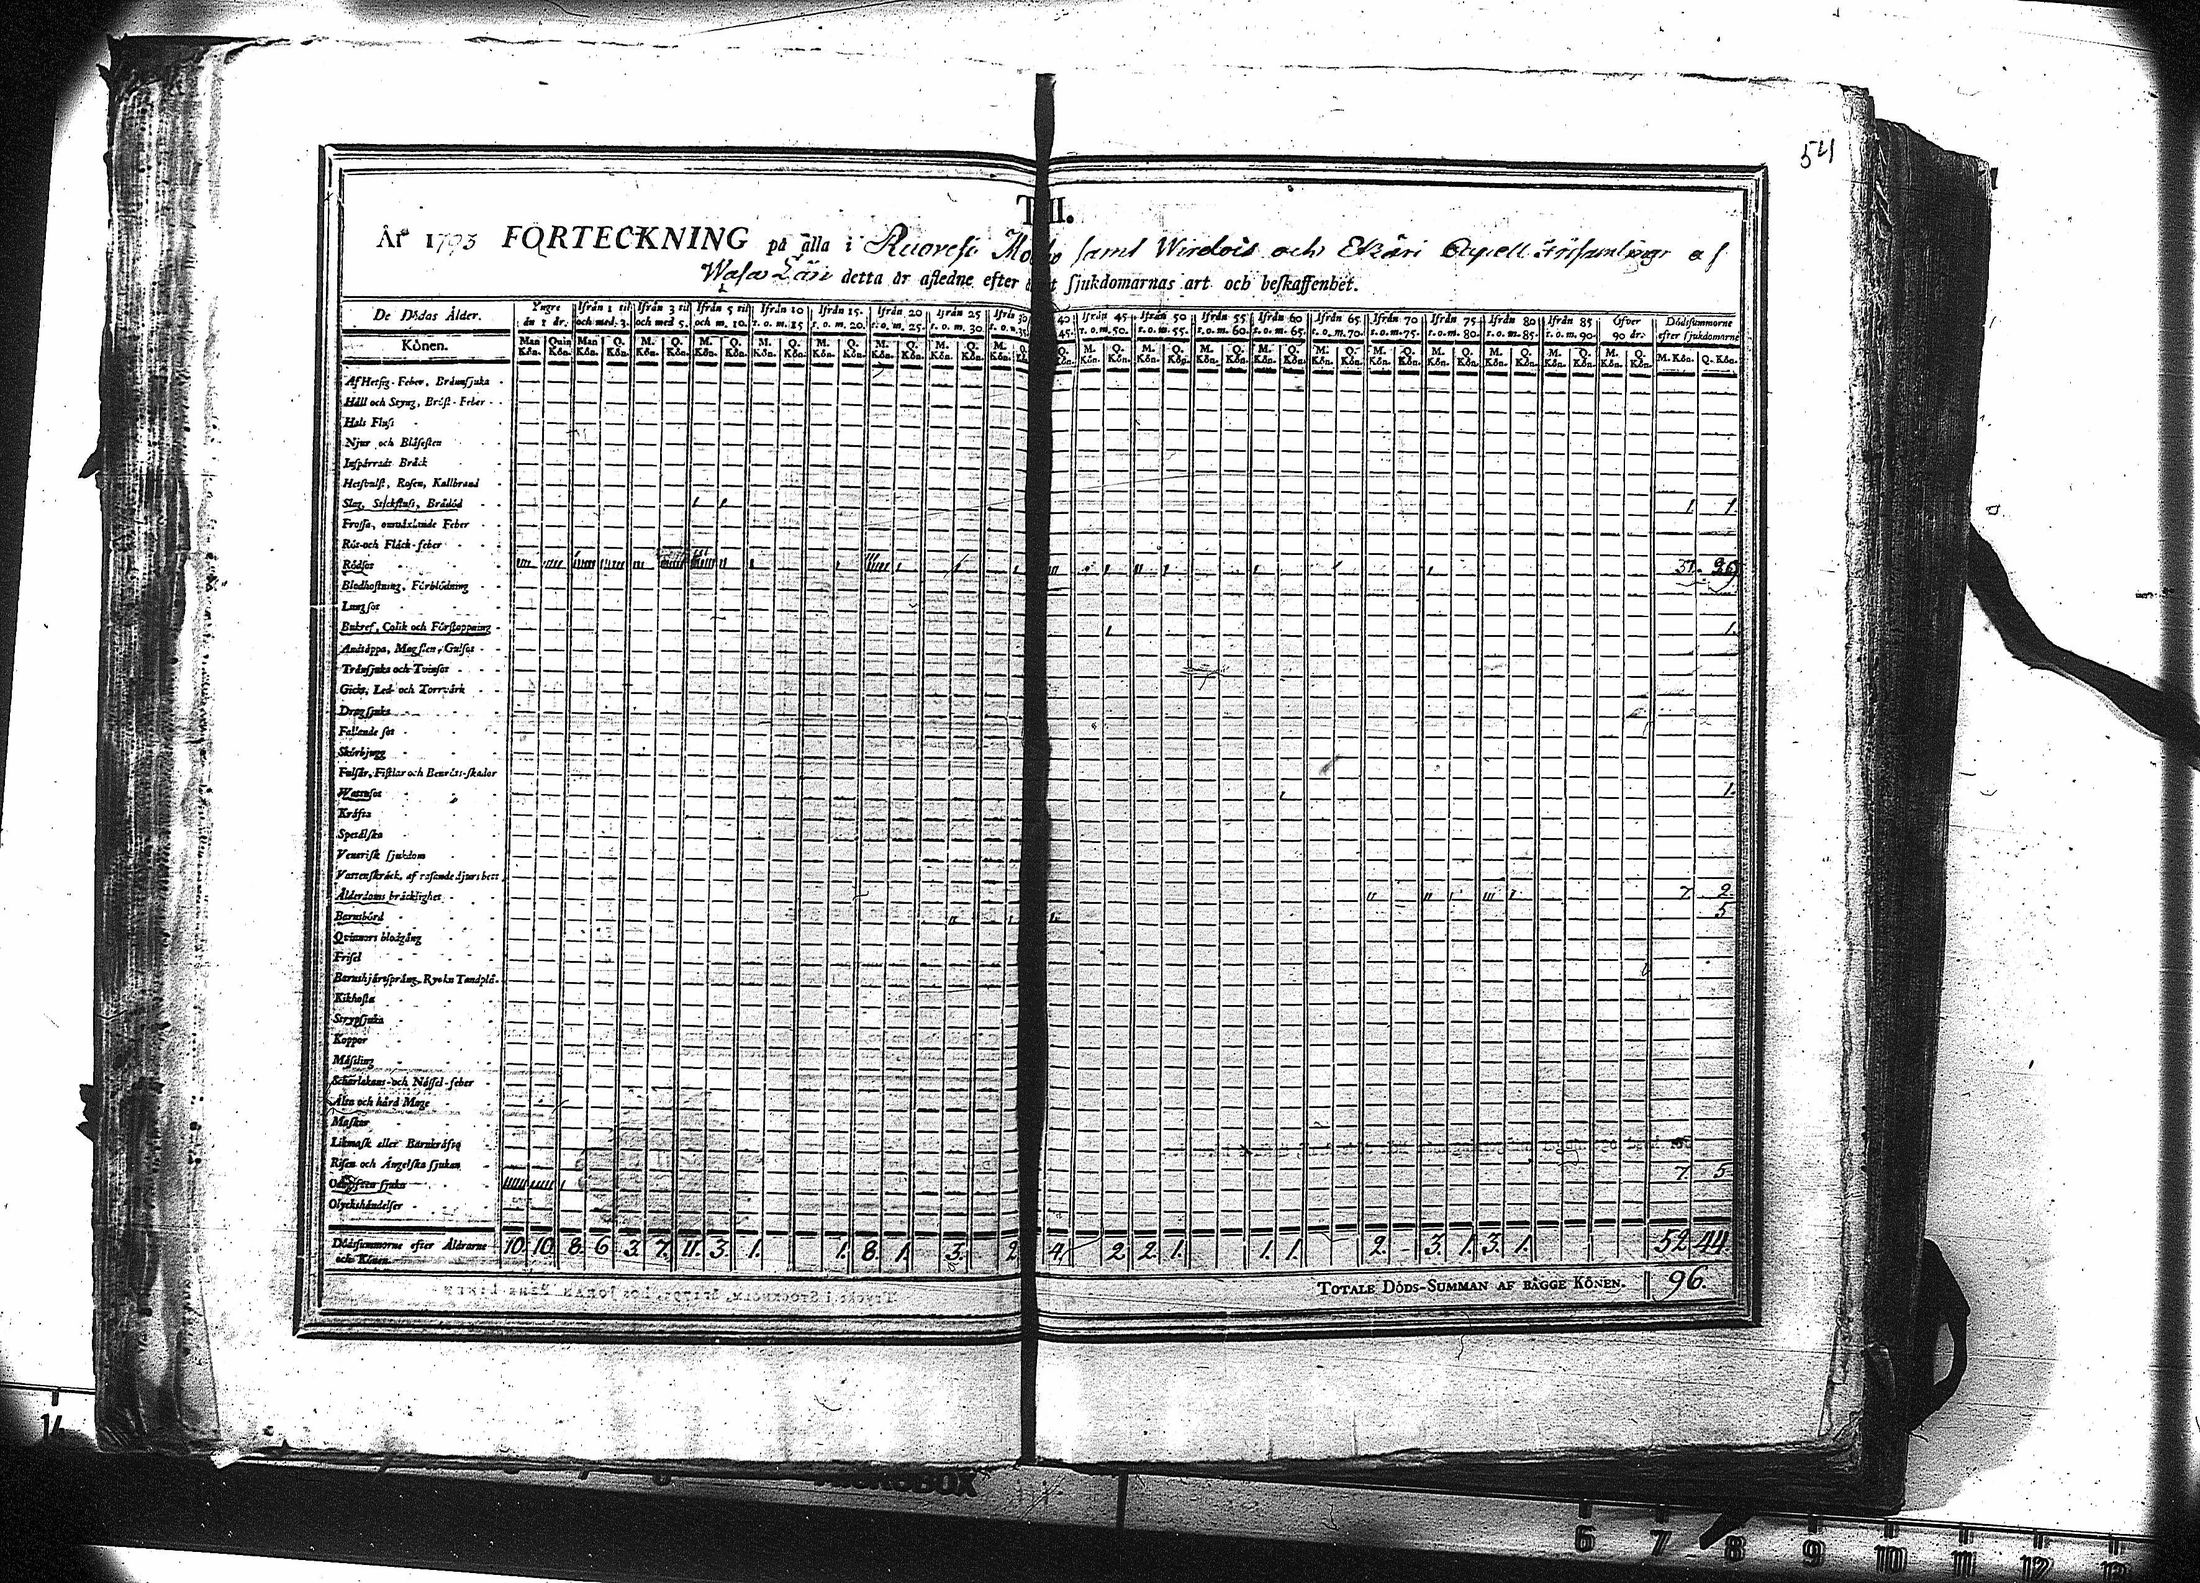 54
T II.
År 1793 FÖRTECKNING på alla i Ruovesi Moder samt Wirdois och Etzäri Capell Församlingar af
Wasa Län detta år afledne efter ſjukdomarnas art och beſkaffenhet.
De Dödas Ålder. Yngre än 1 år. Ifrån 1 til och med 3. Ifrån 3 til och med 5. Ifrån 5 til och m. 10. Ifrån 10 t. o. m. 15 Ifrån 15. t. o. m. 20. Ifrån 20 t. o. m. 25. Ifrån 25 t. o. m. 30. Ifrån 30 40 45. Ifrån 45 t. o. m. 50. Ifrån 50 t. o. m. 55. Ifrån 55 t. o. m. 60. Ifrån 60 t. o. m. 65. Ifrån 65 t. o. m. 70. Ifrån 70 t. o. m. 75. Ifrån 75 t. o. m. 80. Ifrån 80 t. o. m. 85. Ifrån 85 t. o. m. 90. Öfver 90 år. Dödsſummorne efter ſjukdomarne
Könen. Man Kön. Quin Kön. Man Kön. Q. Kön. M. Kön. Q. Kön. M. Kön. Q. Kön. M. Kön. Q. Kön. M. Kön. Q. Kön. M. Kön. Q. Kön. M. Kön. Q. Kön. M. Kön. Q. Kön. M. Kön. Q. Kön. M. Kön. Q. Kön. M. Kön. Q. Kön. M. Kön. Q. Kön. M. Kön. Q. Kön. M. Kön. Q. Kön. M. Kön. Q. Kön. M. Kön. Q. Kön. M. Kön. Q. Kön. M. Kön. Q. Kön. M. Kön. Q. Kön.
Af Hetſig-Feber, Brännſjuka
Håll och Styng, Bröſt-Feber
Hals Fluſs
Njur och Blåſeſten
Inſpärradt Bråck
Hetſvulſt, Roſen, Kallbrand
Slag, Stickfluſs, Brådöd 1. 1
Froſſa, omväxlande Feber
Röt-och Fläck-feber
Rödſot 37. 29
Blodhoſtning, Förblödning
Lungſot
Bukref, Colik och Förſtoppning 1.
Andtäppa, Magſten, Gulſot
Tränſjuka och Tvinſot
Gickt, Led- och Torrvärk
Dragſjuka
Fallande ſot
Skörbjugg
Fulſår, Fiſtlar och Benröts-ſkador
Wattuſot 1.
Kräfta
Spetälſka
Veneriſk ſjukdom
Vattenſkräck, af raſande djurs bett
Ålderdoms bräcklighet 7. 2.
Barnsbörd 5
Qvinnors blodgång
Friſel
Barnshjärtſprång, Ryck, Tandplå.
Kikhoſta
Strypſjuka
Koppor
Mäſsling
Scharlakans-och Näſſel-feber
Älta och hård Mage
Maſkar
Likmaſk eller Barnkräfta
Riſen och Ängelſka ſjukan
ſjuka 7. 5
Olyckshändelſer
Dödsſummorne efter Åldrarne och Könen. 10. 10. 8. 6. 3. 7. 11. 3. 1. 1. 8. 1. 3. 2 4. 2 2. 1. 1. 1. 2. 3. 1. 3. 1. 52 44.
TOTALE DÖDS-SUMMAN AF BÅGGE KÖNEN. 96.
14
MICROBOX
6 7 8 9 10 11 12 13